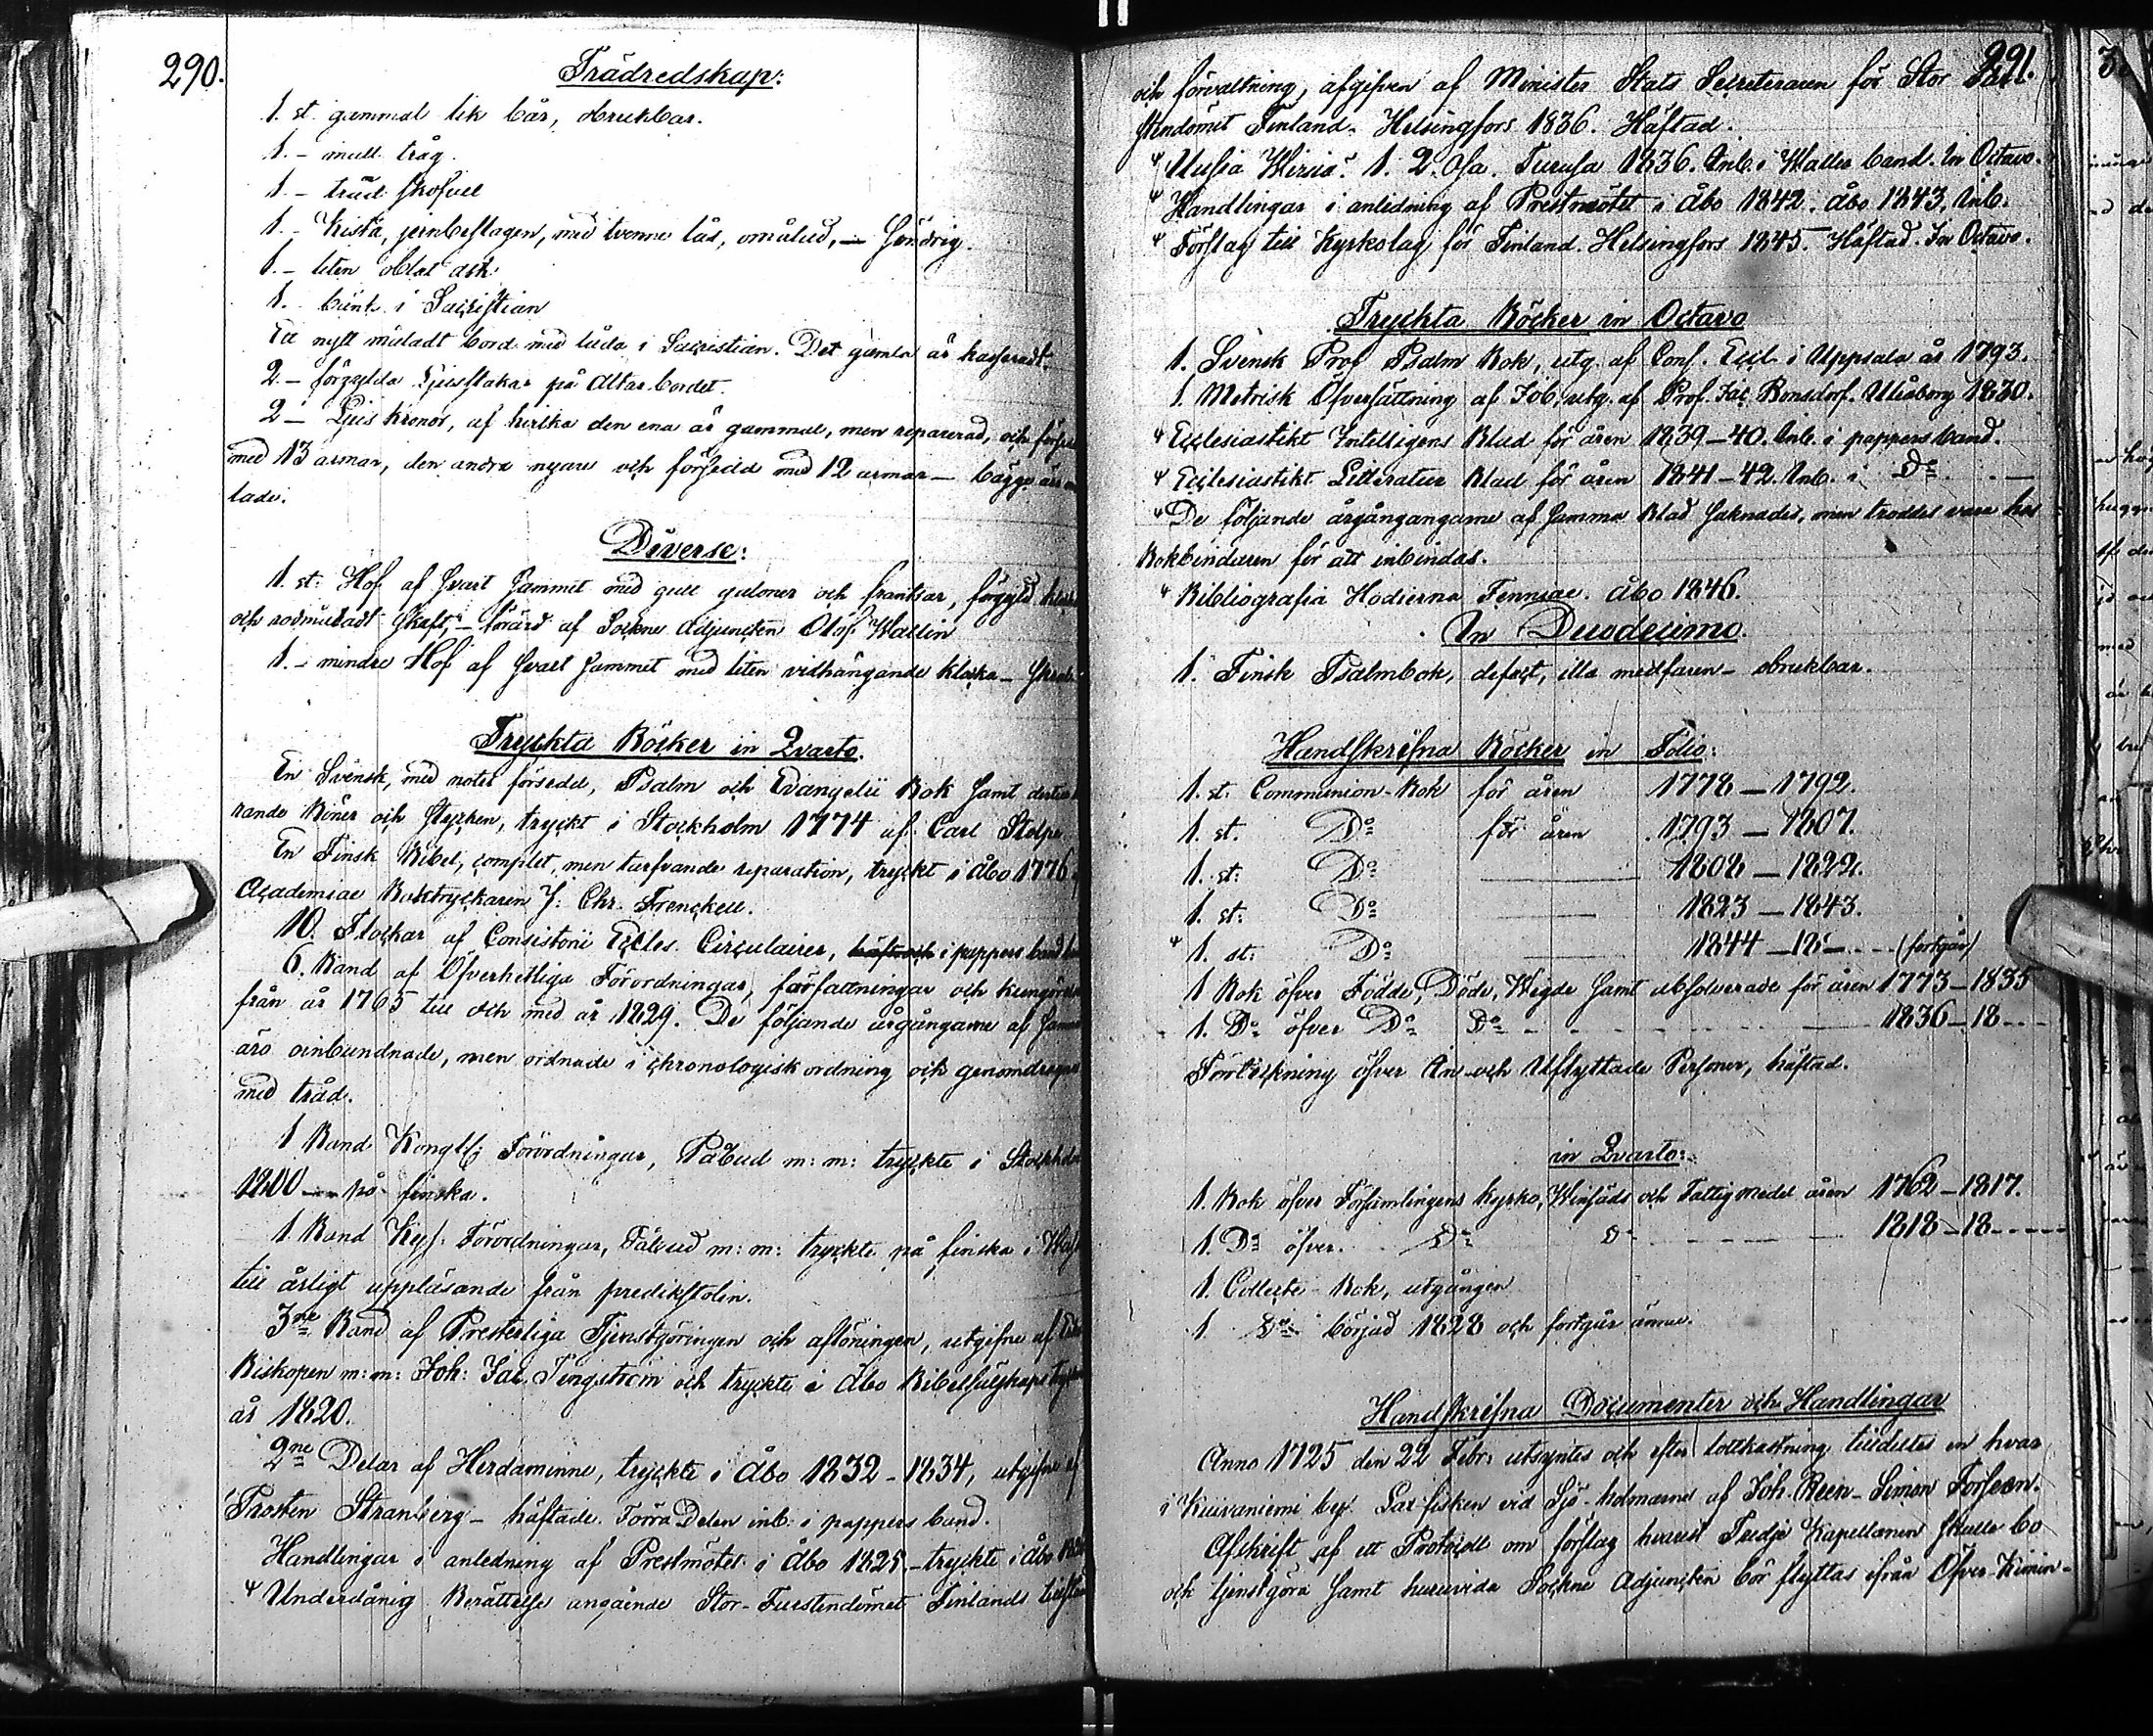 290.
Trädredskap:
1. st. gammal lik bår, obrukbar.
1. – mull tråg.
1. – träd skofvel
1. – Kista, jernbeslagen, med tvenne lås, omålad, – söndrig.
1. – liten oblat ask
1. bänk i Sacristian
Ett nytt måladt bord med låda i Sacristian. Det gamla är kasseradt.
2. – förgylda Ljusstakar på Altar bordet.
2 – Ljus kronor, af hvilka den ena är gammal, men reparerad, och
med 13 armar, den andra nyare och försedd med 12 armar – bägge
lade.
Diverse:
1. st: Hof af svart sammet med gull galoner och frantsar, förgyld
och rödmåladt skaft, – förärd af Sockne Adjuncten Olof Wallin
1. – mindre Hof af svart sammet med liten vidhängande klocka –
Tryckta Böcker in Qvarto.
En Svensk, med noter försedd, Psalm och Evangelii Bok samt
rande Böner och stycken, tryckt i Stockholm 1774 af Carl Stolpe.
En Finsk Bibel, complet, men tarfvande reparation, tryckt i Åbo 1776
Academiae Boktryckaren J: Chr. Frenckell.
10. Flockar af Consistorii Eccles. Circulairer, häft och i pappers band
6. Band af Öfverhetliga Förordningar, författningar och
från år 1765 till och med år 1829. De följande årgångarne af
äro oinbundnade, men ordnade i chronologisk ordning och genomdragna
med tråd.
1 Band Kongl: Förordningar, Påbud m: m: tryckte i Stockholm
1800 – på finska.
1 Band Kejs: Förordningar, Påbud m: m: tryckte på finska i
till årligt uppläsande från predikstolen.
3ne Band af Presterliga Tjenstgöringen och aflöningen, utgifne af
Biskopen m: m: Joh: Jac. Tengström och tryckte i Åbo Bibelsällskaps
år 1820.
2ne Delar af Herdaminne, tryckte i Åbo 1832–1834, utgifne af
Prosten Stranberg – häftade. Förra Delen inb: i pappers band.
Handlingar i anledning af Prestmötet i Åbo 1825. – tryckte i Åbo
Underdånig Berättelse angående Stor-Furstendömet Finlands
291.
och förvaltning, afgifven af Minister Stats Secreteraren för Stor
stendömet Finland. Helsingfors 1836. Häftad.
Uusia Wirsiä. 1. 2. Osa. Turusa 1836. Inb. i Walls band. In Octavo.
Handlingar i anledning af Prestmötet i Åbo 1842. Åbo 1843, Inb.
Förslag till Kyrkolag för Finland. Helsingfors 1845. Häftad. In Octavo.
Tryckta Böcker in Octavo
1. Svensk Prof Psalm Bok, utg. af Cons. Eccl. i Uppsala år 1793.
1. Metrisk Öfversättning af Job, utg. af Prof. Jac. Bonsdorf. Uleåborg 1830.
Ecclesiastikt Intelligens Blad för åren 1839–40. Inb. i pappers band.
Ecclesiastikt Litteratur Blad för åren 1841–42. Inb. i Do –
De följande årgångarne af samma Blad saknades, men troddes vara hos
Bokbindaren för att inbindas.
Bibliografia Hodierna Fenniae. Åbo 1846.
In Duodecimo.
1. Finsk Psalmbok, defect, illa medfaren – obrukbar.
Handskrifna Böcker in Folio:
1. st: Communion-Bok för åren 1778 – 1792.
1. st. Do för åren 1793 – 1807.
1. st: Do 1808 – 1822.
1. st: Do 1823 – 1843.
1. st: Do 1844 – 18 – (fortgår)
1 Bok öfver Födde, Döde, Wigde samt absolverade för åren 1773–1835
1. Do öfver Do Do 1836–18
Förteckning öfver In- och Utflyttade Personer, häftad.
in Qvarto:
1. Bok öfver Församlingens Kyrko, Winsäds och Fattigmedel åren 1762–1817.
1. Do öfver. Do Do 1818–18
1. Collecte-Bok, utgången
1. Do börjad 1828 och fortgår ännu.
Handskrifna Documenter och Handlingar
Anno 1725 den 22 Febr: utsyntes och efter lottkastning tilldeltes en hvar
i Kuivaniemi by. Lax fisken vid Sjö-holmarne af Joh. Reen – Simon Forseen.
Afskrift af ett Protocoll om förslag hvarest Tredje Kapellanen skulle bo
och tjenstgöra samt huruvida Sockne Adjuncten bör flyttas ifrån Öfver-Kimin-